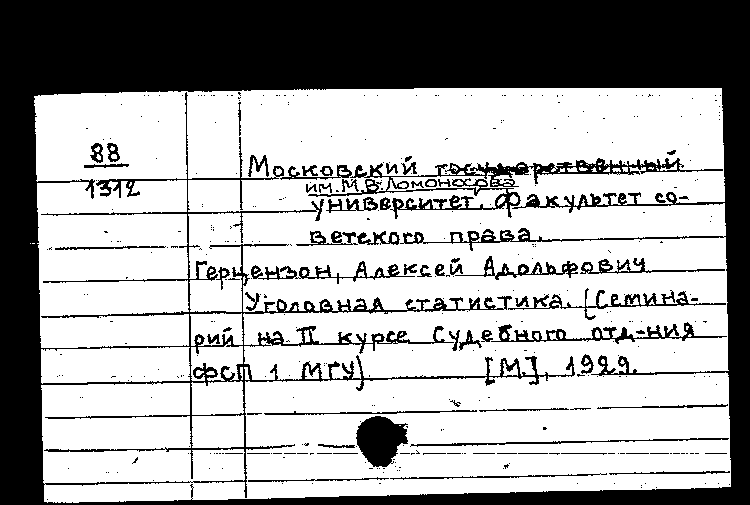 88
1312
Московский государственный
им. М.В. Ломоносова
университет. Факультет со-
ветского права.
Герцензон, Алексей Адольфович
Уголовная статистика. [Семина-
рий на II курсе Судебного отд-ния
ФСП 1 МГУ]. [М.], 1929.